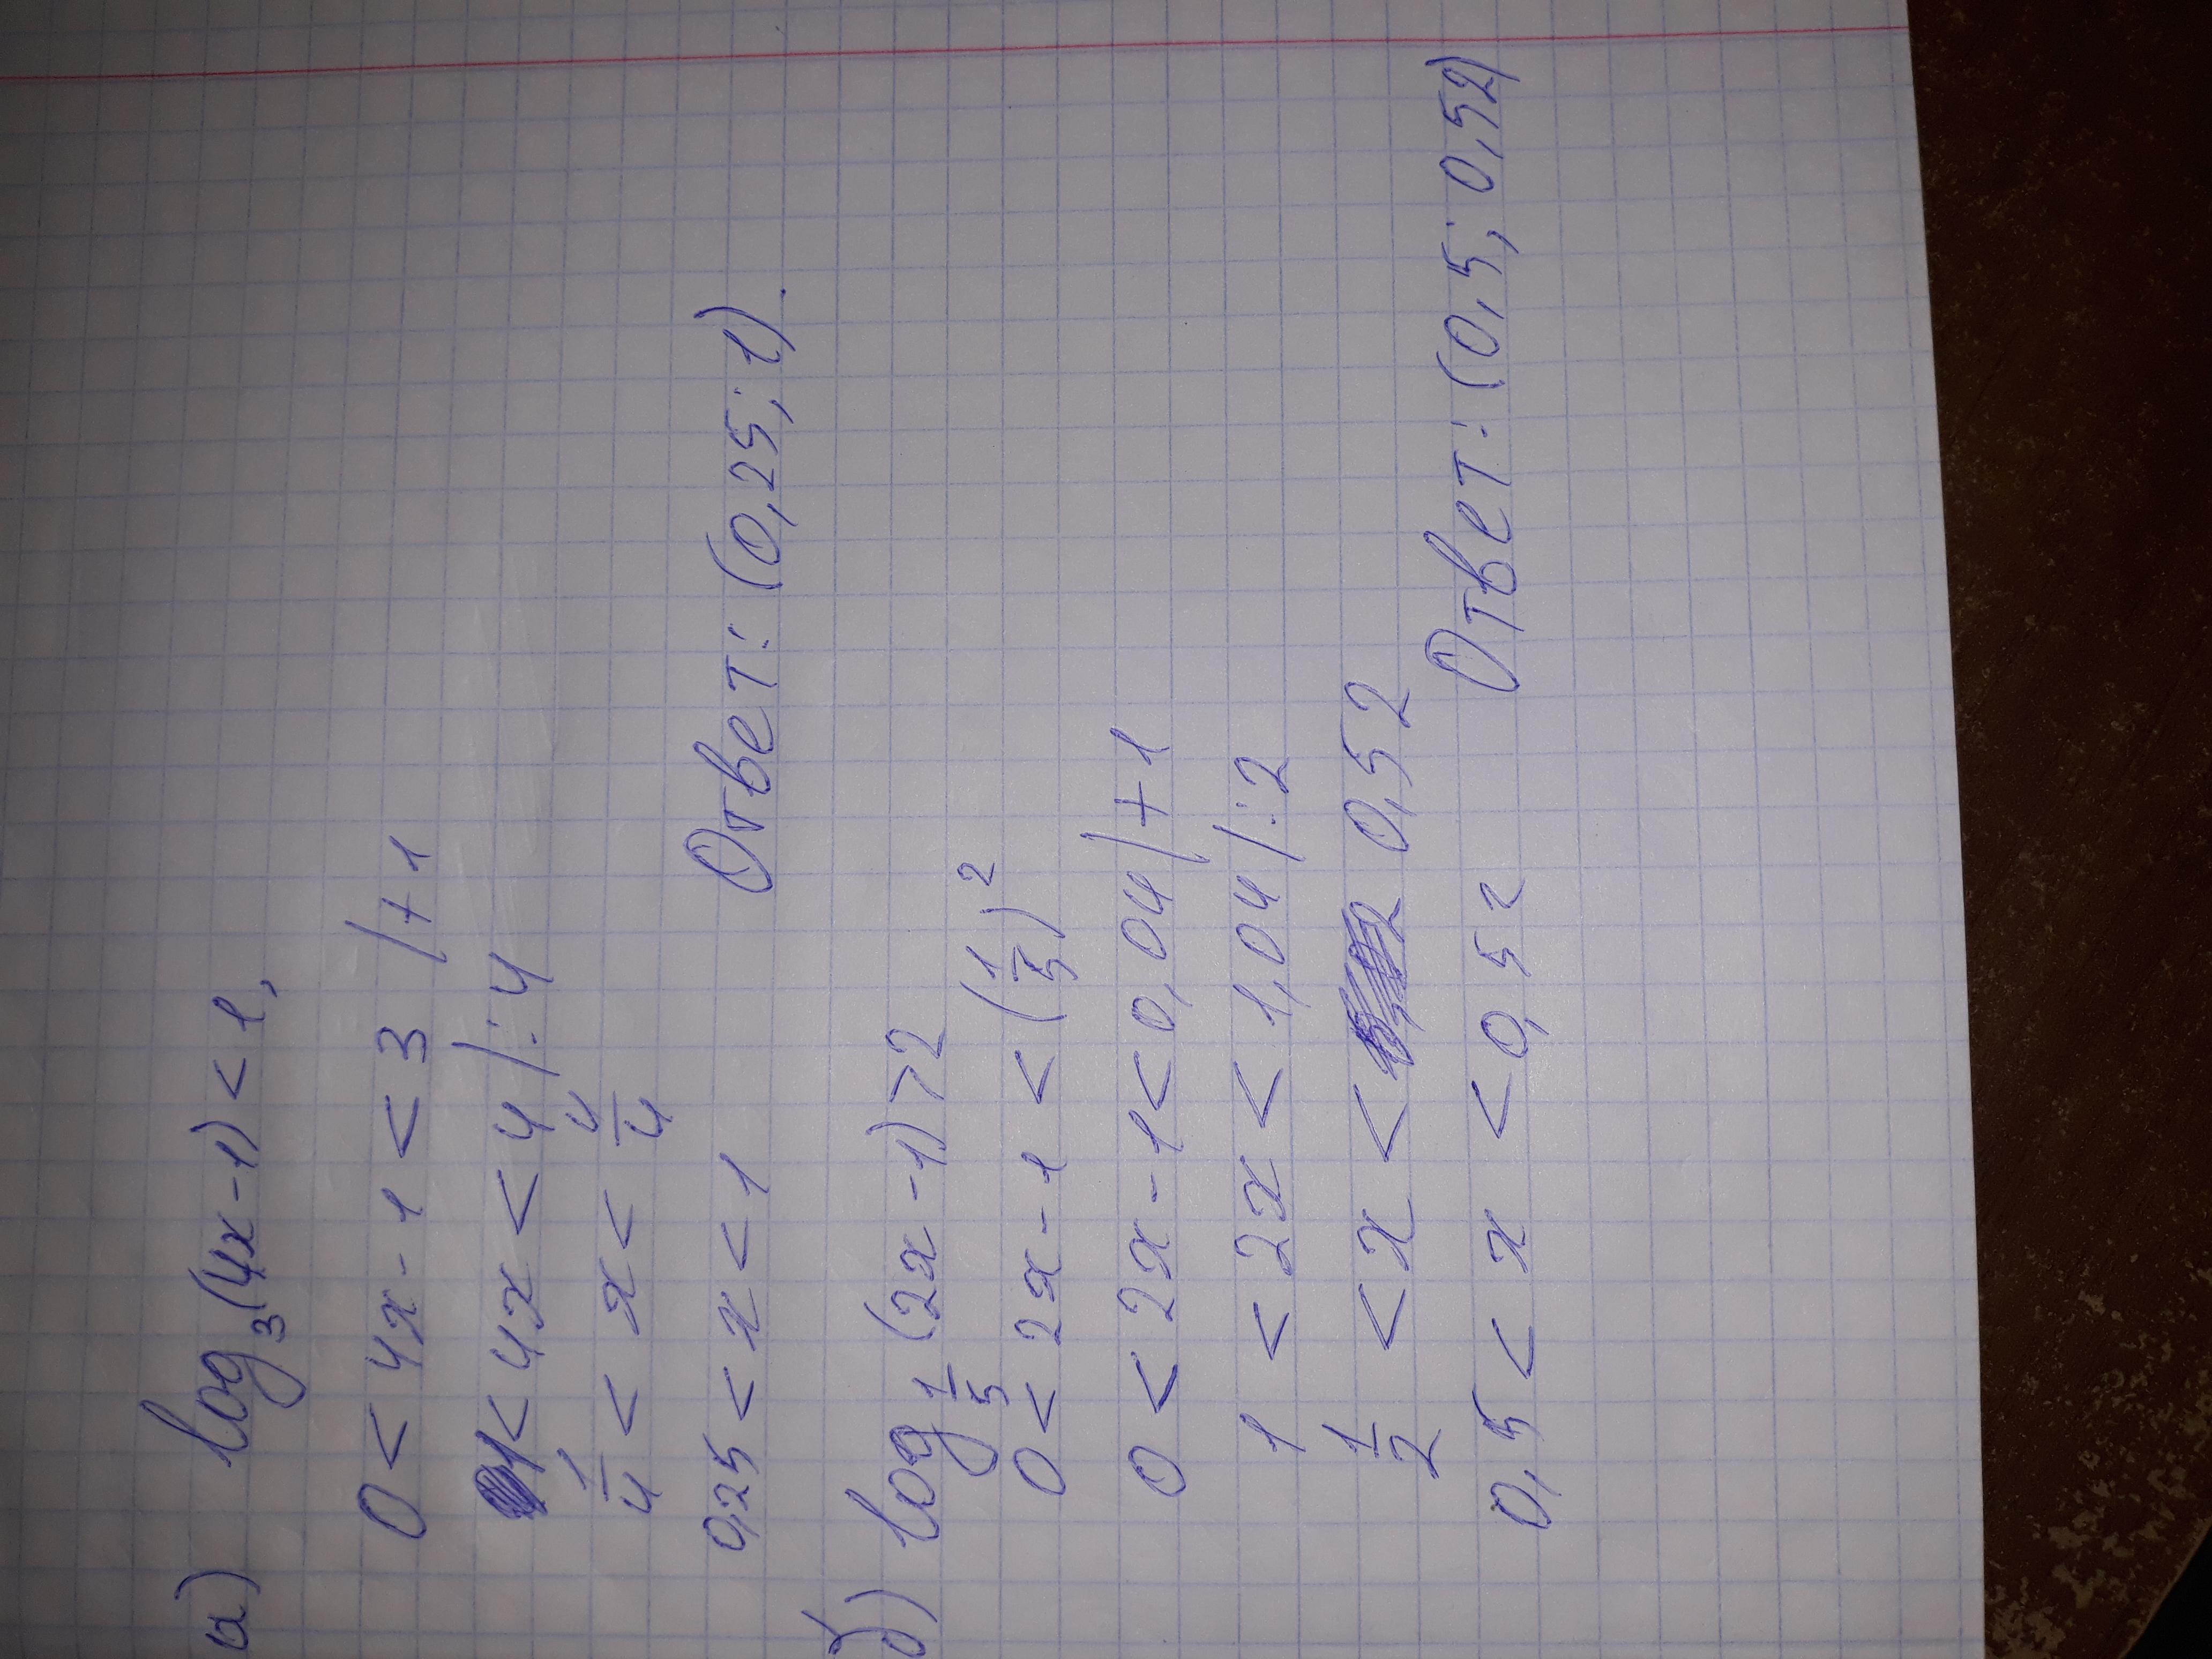 а) log₃(4x-1) < 1,
0 < 4x - 1 < 3 /+1
1 < 4x < 4 /:4
1/4 < x < 4/4
0,25 < x < 1
Ответ: (0,25; 1).
б) log 1/5 (2x-1) > 2
0 < 2x - 1 < (1/5)²
0 < 2x - 1 < 0,04 /+1
1 < 2x < 1,04 /:2
1/2 < x < 0,52
0,5 < x < 0,52
Ответ: (0,5; 0,52)